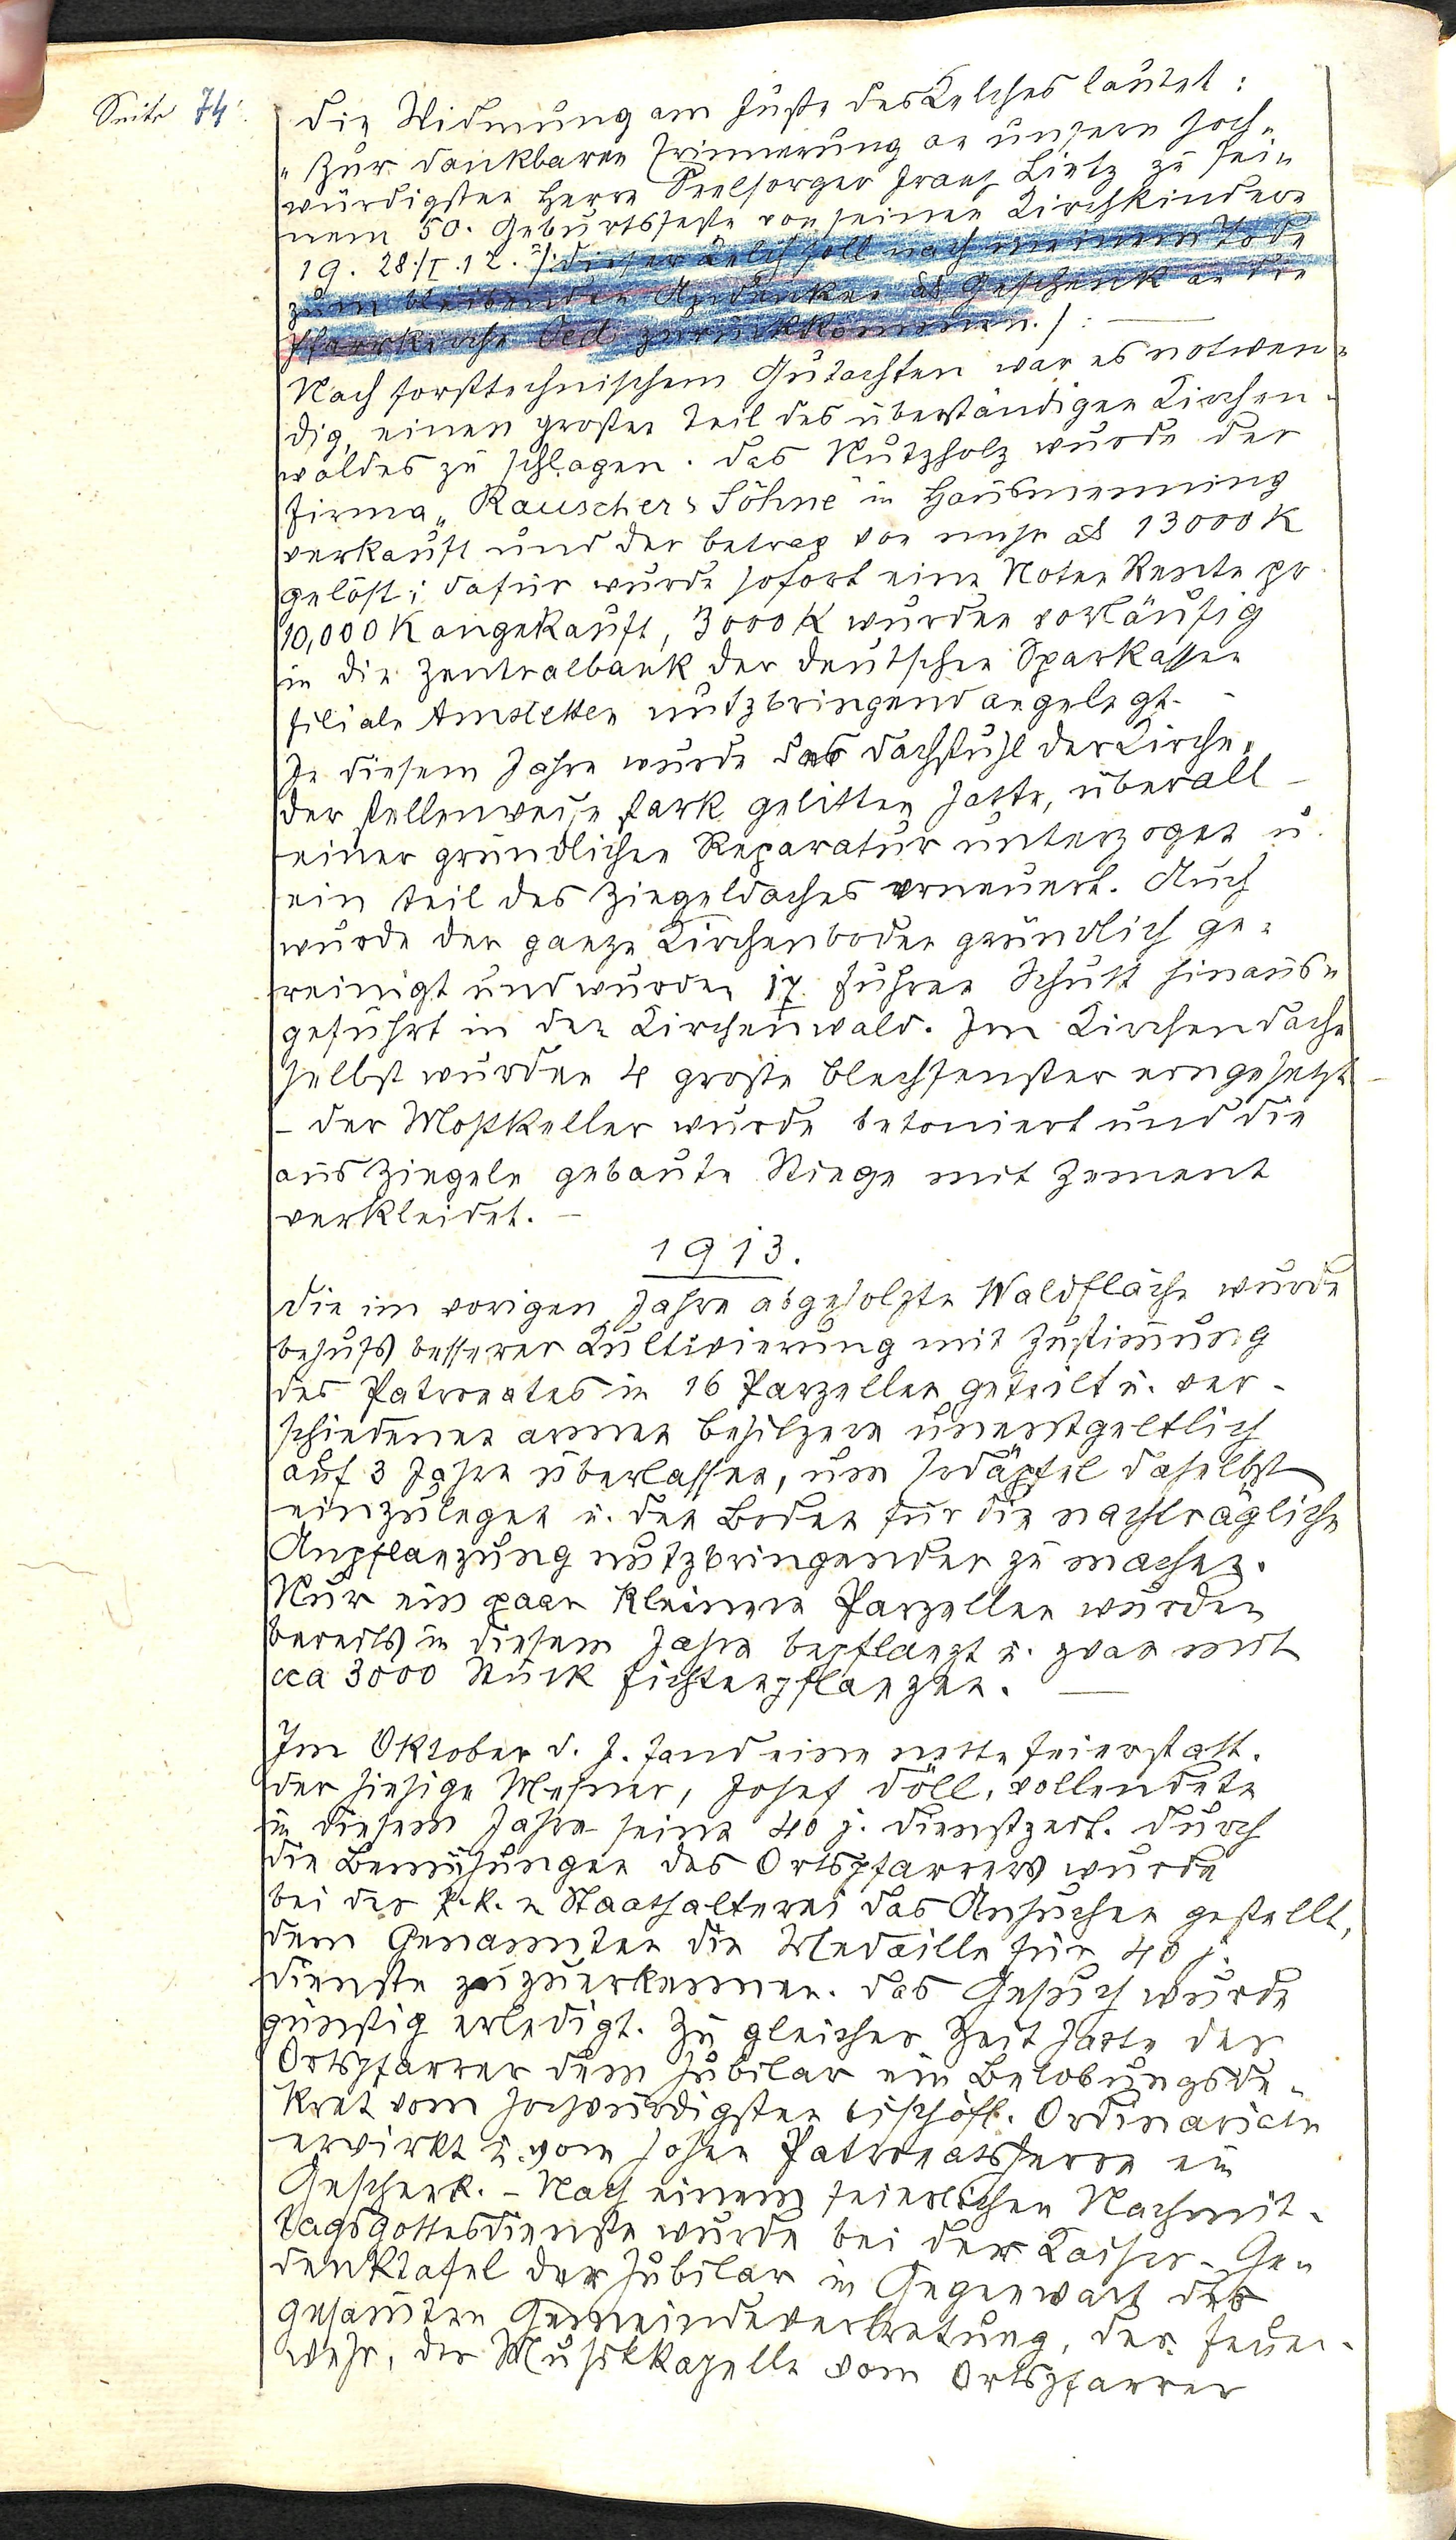 Seite 74.
Die Widmung am Fuße des Kelches lautet:
"Zur dankbaren Erinnerung an unsern hoch=
würdigsten Herrn Seelsorger Franz Lietz zu sei=
nem 50. Geburtsfeste von seinen Kirchkindern
19. 28./I.12." /:Dieser Kelch soll nach meinem Tode
zum bleibenden Andenken als Geschenk an die
Pfarrkirche Oed zurückkommen./: —
Nach forsttechnischem Gutachten war es notwen=
dig, einen großen Teil des überständigen Kirchen-
waldes zu schlagen. Das Nutzholz wurde der
Firma „Rauscher's Söhne" in Hausmenning
verkauft und der Betrag von mehr als 13000 K
gelöst; dafür wurde sofort eine Noten Rente pr
10,000 K angekauft, 3000 K wurden vorläufig
in die Zentralbank der deutschen Sparkassen
Filiale Amstetten nutzbringend angelegt. -
In diesem Jahre wurde der Dachstuhl der Kirche,
der stellenweise stark gelitten hatte, überall -
einer gründlichen Reparatur unterzogen u.
ein Teil des Ziegeldaches erneuert. Auch
wurde der ganze Kirchenboden gründlich ge=
reinigt und wurden 17 Fuhren Schutt hinaus=
geführt in den Kirchenwald. Im Kirchendache
selbst wurden 4 große Blechfenster eingesetzt -
- Der Mostkeller wurde betoniert und die
aus Ziegeln gebaute Stiege mit Zement
verkleidet. -
1913.
Die im vorigen Jahre abgeholzte Waldfläche wurde
behufs besserer Kultivierung mit Zustim̅ung
des Patronates in 16 Parzellen geteilt u. ver-
schiedenen armen Besitzern unentgeltlich
auf 3 Jahre überlassen, um Erdäpfel daselbst
einzulegen u. den Boden für die nachträgliche
Anpflanzung nutzbringender zu machen.
Nur ein paar kleinere Parzellen wurden
bereits in diesem Jahre bepflanzt u. zwar mit
cca 3000 Stück Fichtenpflanzen. —
Im Oktober d. J. fand eine nette Feier statt.
Der hiesige Mesner, Josef Döll, vollendete
in diesem Jahre seine 40 j. Dienstzeit. Durch
die Bemühungen des Ortspfarrers wurde
bei der k. k. n Statthalterei das Ansuchen gestellt,
dem Genannten die Medaille für 40 j.
Dienste zuzuerkennen. Das Gesuch wurde
günstig erledigt. Zu gleicher Zeit hatte der
Ortspfarrer dem Jubilar ein Belobungsde-
kret vom hochwürdigsten bischöfl. Ordinariate
erwirkt u. vom hohen Patronatsherrn ein
Geschenk. - Nach einem feierlichen Nachmit-
tagsgottesdienste wurde bei der Kaiser-Ge=
denktafel der Jubilar in Gegenwart der
gesam̅ten Gemeindevertretung, der Feuer-
wehr, der Musikkapelle vom Ortspfarrer